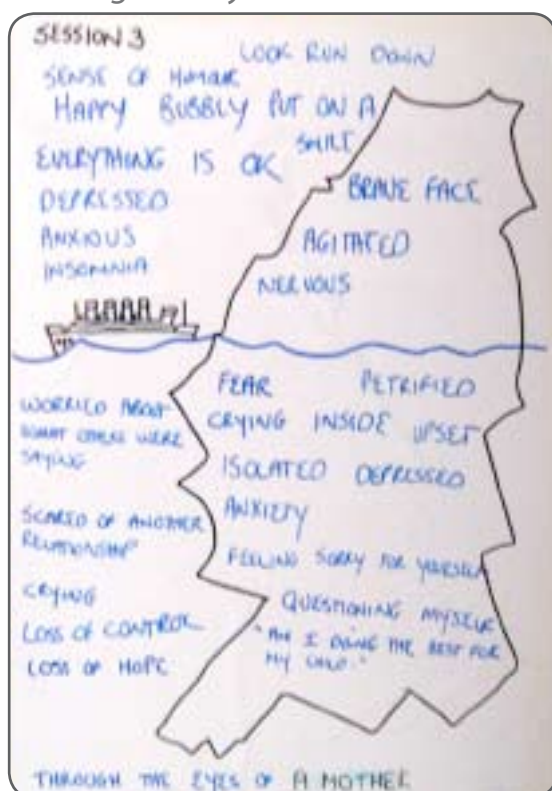 SESSION 3
LOOK RUN DOWN
SENSE OF HUMOUR
HAPPY BUBBLY PUT ON A
SMILE
EVERYTHING IS OK
BRAVE FACE
DEPRESSED
AGITATED
ANXIOUS
INSOMNIA
NERVOUS
FEAR PETRIFIED
CRYING INSIDE UPSET
ISOLATED DEPRESSED
ANXIETY
FEELING SORRY FOR YOURSELF
QUESTIONING MYSELF
"AM I DOING THE BEST FOR
MY CHILD."
WORRIED ABOUT
WHAT OTHERS WERE
SAYING
SCARED OF ANOTHER
RELATIONSHIP
CRYING
LOSS OF CONTROL
LOSS OF HOPE
THROUGH THE EYES OF A MOTHER